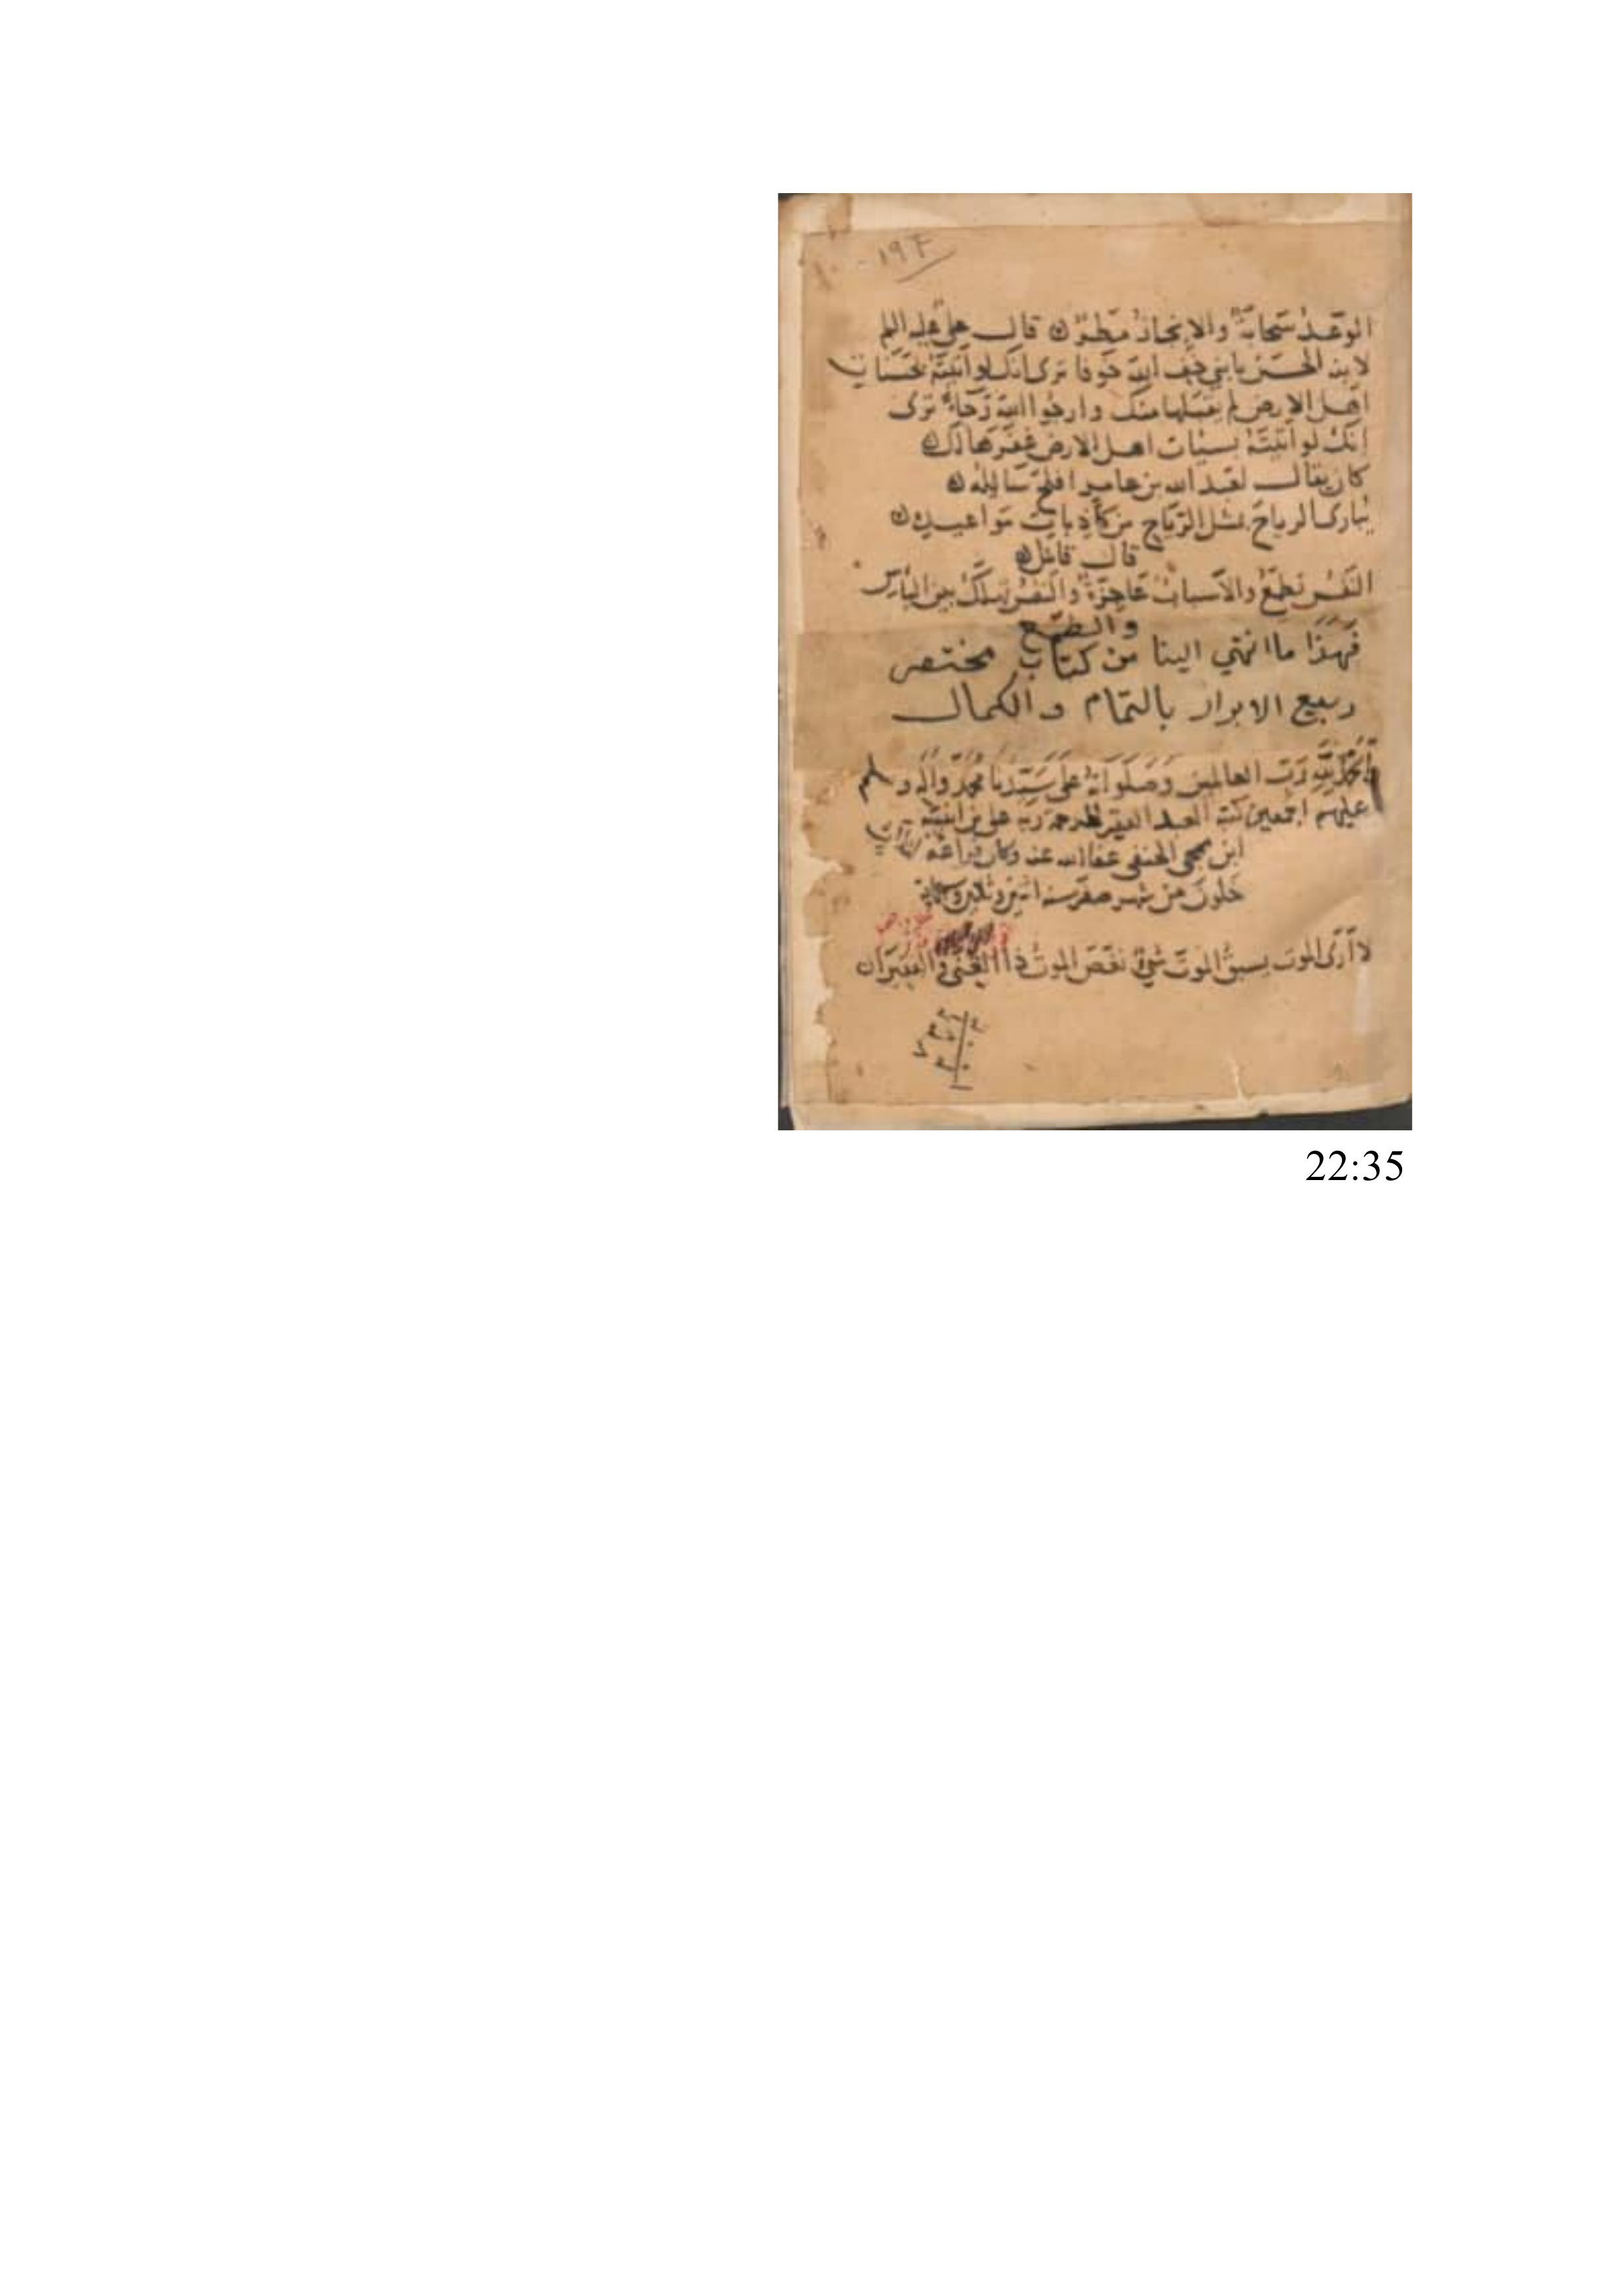 ١٩٣
الوعد سحابة والانجاز مطره قال علي عليه السلم
لابنه الحسن يا بني خف الله خوفا ترى انك لو اتيته بحسنات
اهل الارض لم يقبلها منك وارجوا الله رجاء ترى
انك لو اتيته بسيات اهل الارض غفرها لك
كان يقال لعبد الله بن عامر افلح سائله
يبارى الرياح بمثل الرياح من كاذبات مواعيده
قال قائل
النفس تطمع والاسباب عاجزة والنفس تهلك بين الياس
والطمع
فهذا ما انتهي الينا من كتاب مختصر
ربيع الابرار بالتمام والكمال
الحمد لله رب العالمين وصلواته على سيدنا محمد واله وسلم
عليهم اجمعين كتبه العبد الفقير لرحمة ربه علي بن
ابن الحنفي عفا الله عنه وكان فراغه
خلون من شهر صفر سنه اثنين
لا ارى الموت يسبق الموت شئ نغص الموت ذا الغنى والفقيرا
22:35